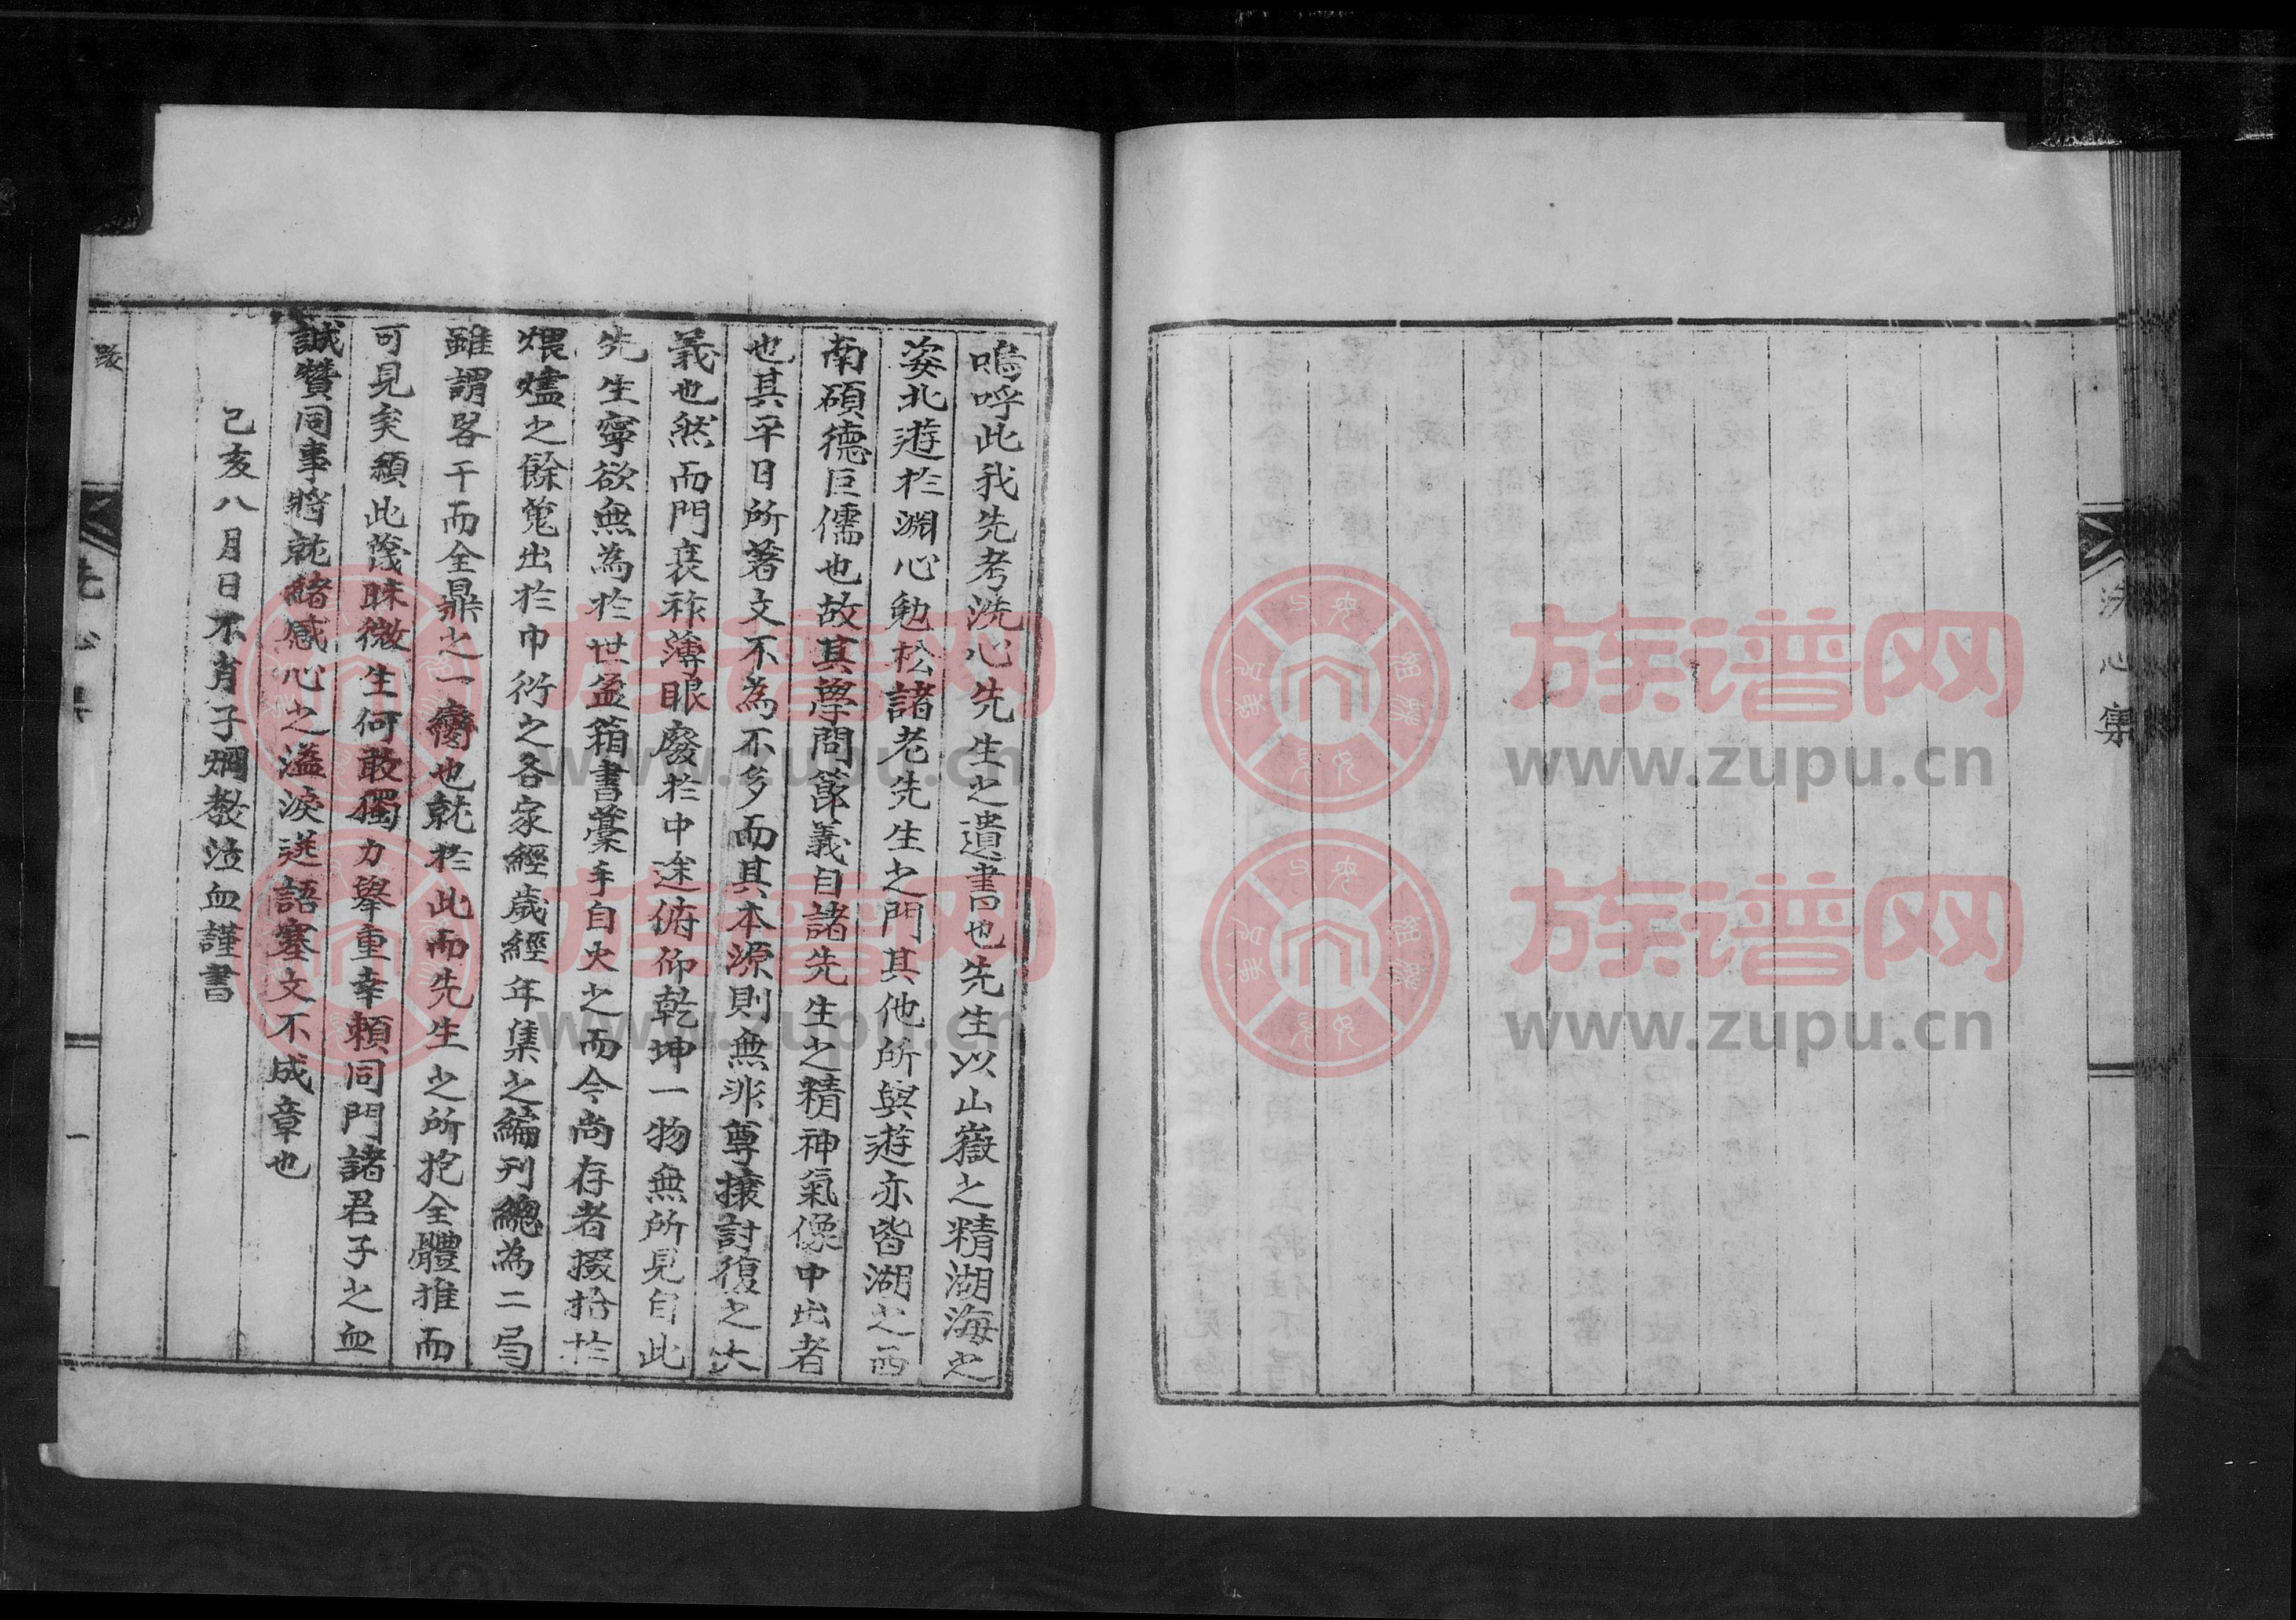 洗心集
嗚呼此我先考洗心先生之遺書也先生以山嶽之精湖海之
姿北遊於淵心勉松諸老先生之門其他所與遊亦皆湖之西
南碩德巨儒也故其學問節義自諸先生之精神氣像中出者
也其平日所著文不為不多而其本源則無非尊攘討復之大
義也然而門衰祚薄眼廢於中途俯仰乾坤一物無所見自此
先生寧欲無為於世盆箱書藁手自火之而今尚存者掇拾於
煨爐之餘蒐出於巾衍之各家經歲經年集之編刊總為二局
雖謂畧干而全鼎之一臠也就於此而先生之所抱全體推而
可見矣顧此蔑昧微生何敢獨力擧重幸賴同門諸君子之血
誠贊同事將就緒感心之溢淚迸語塞文不成章也
己亥八月日不肖子炯教泣血謹書
跋
洗心集
一
族谱网
www.zupu.cn
族谱网
www.zupu.cn
族谱网
www.zupu.cn
族谱网
www.zupu.cn